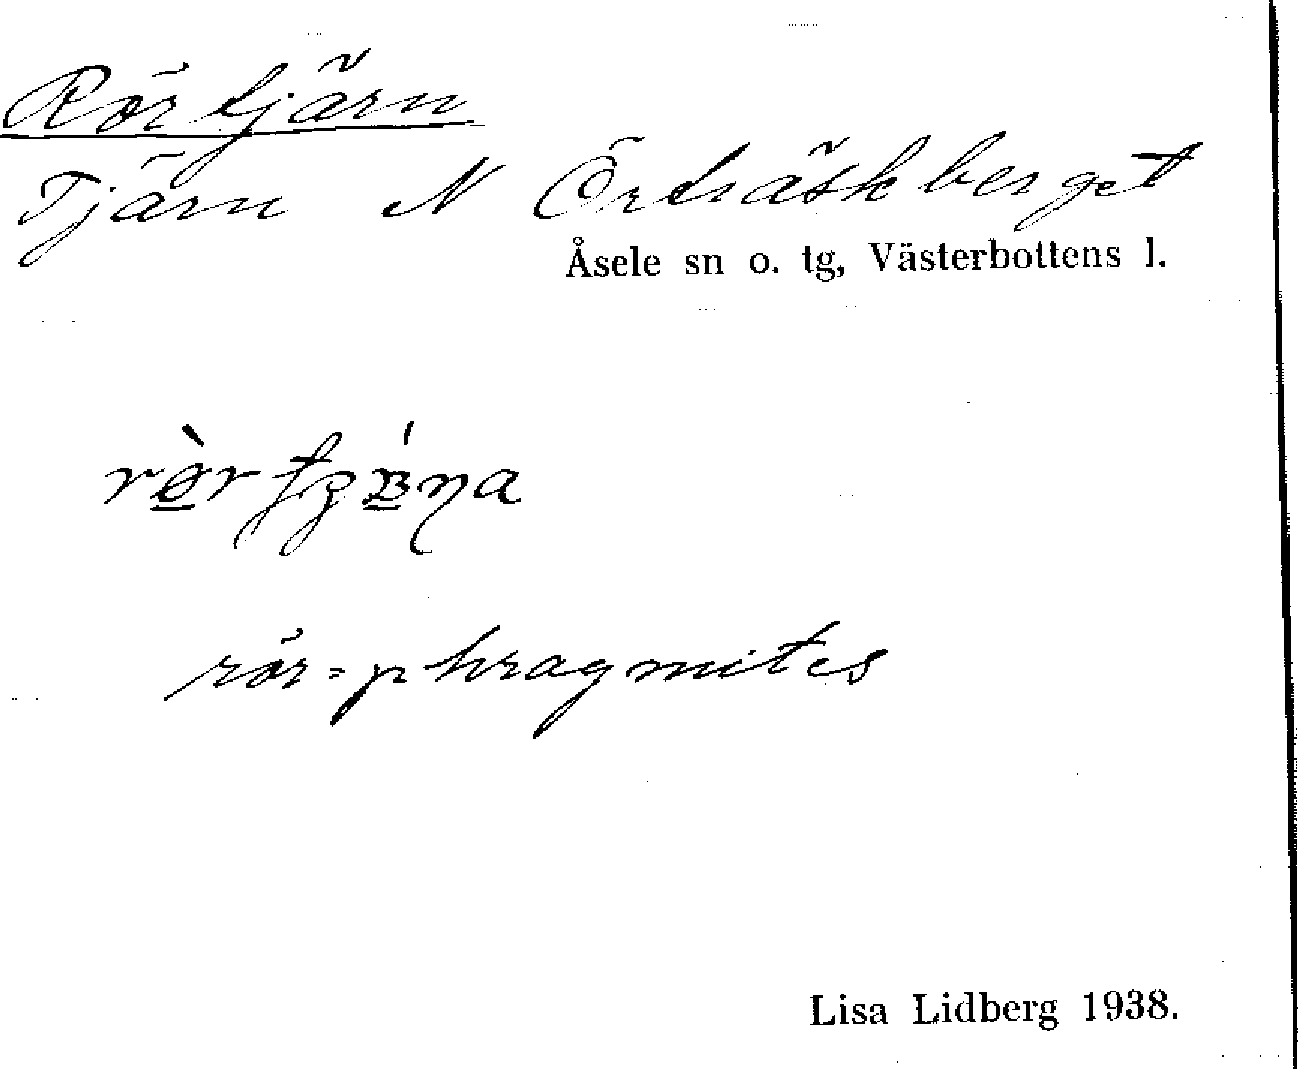 Rörtjärn
Tjärn N Örträskberget
Åsele sn o. tg, Västerbottens l.
rör = phragmites
Lisa Lidberg 1938.